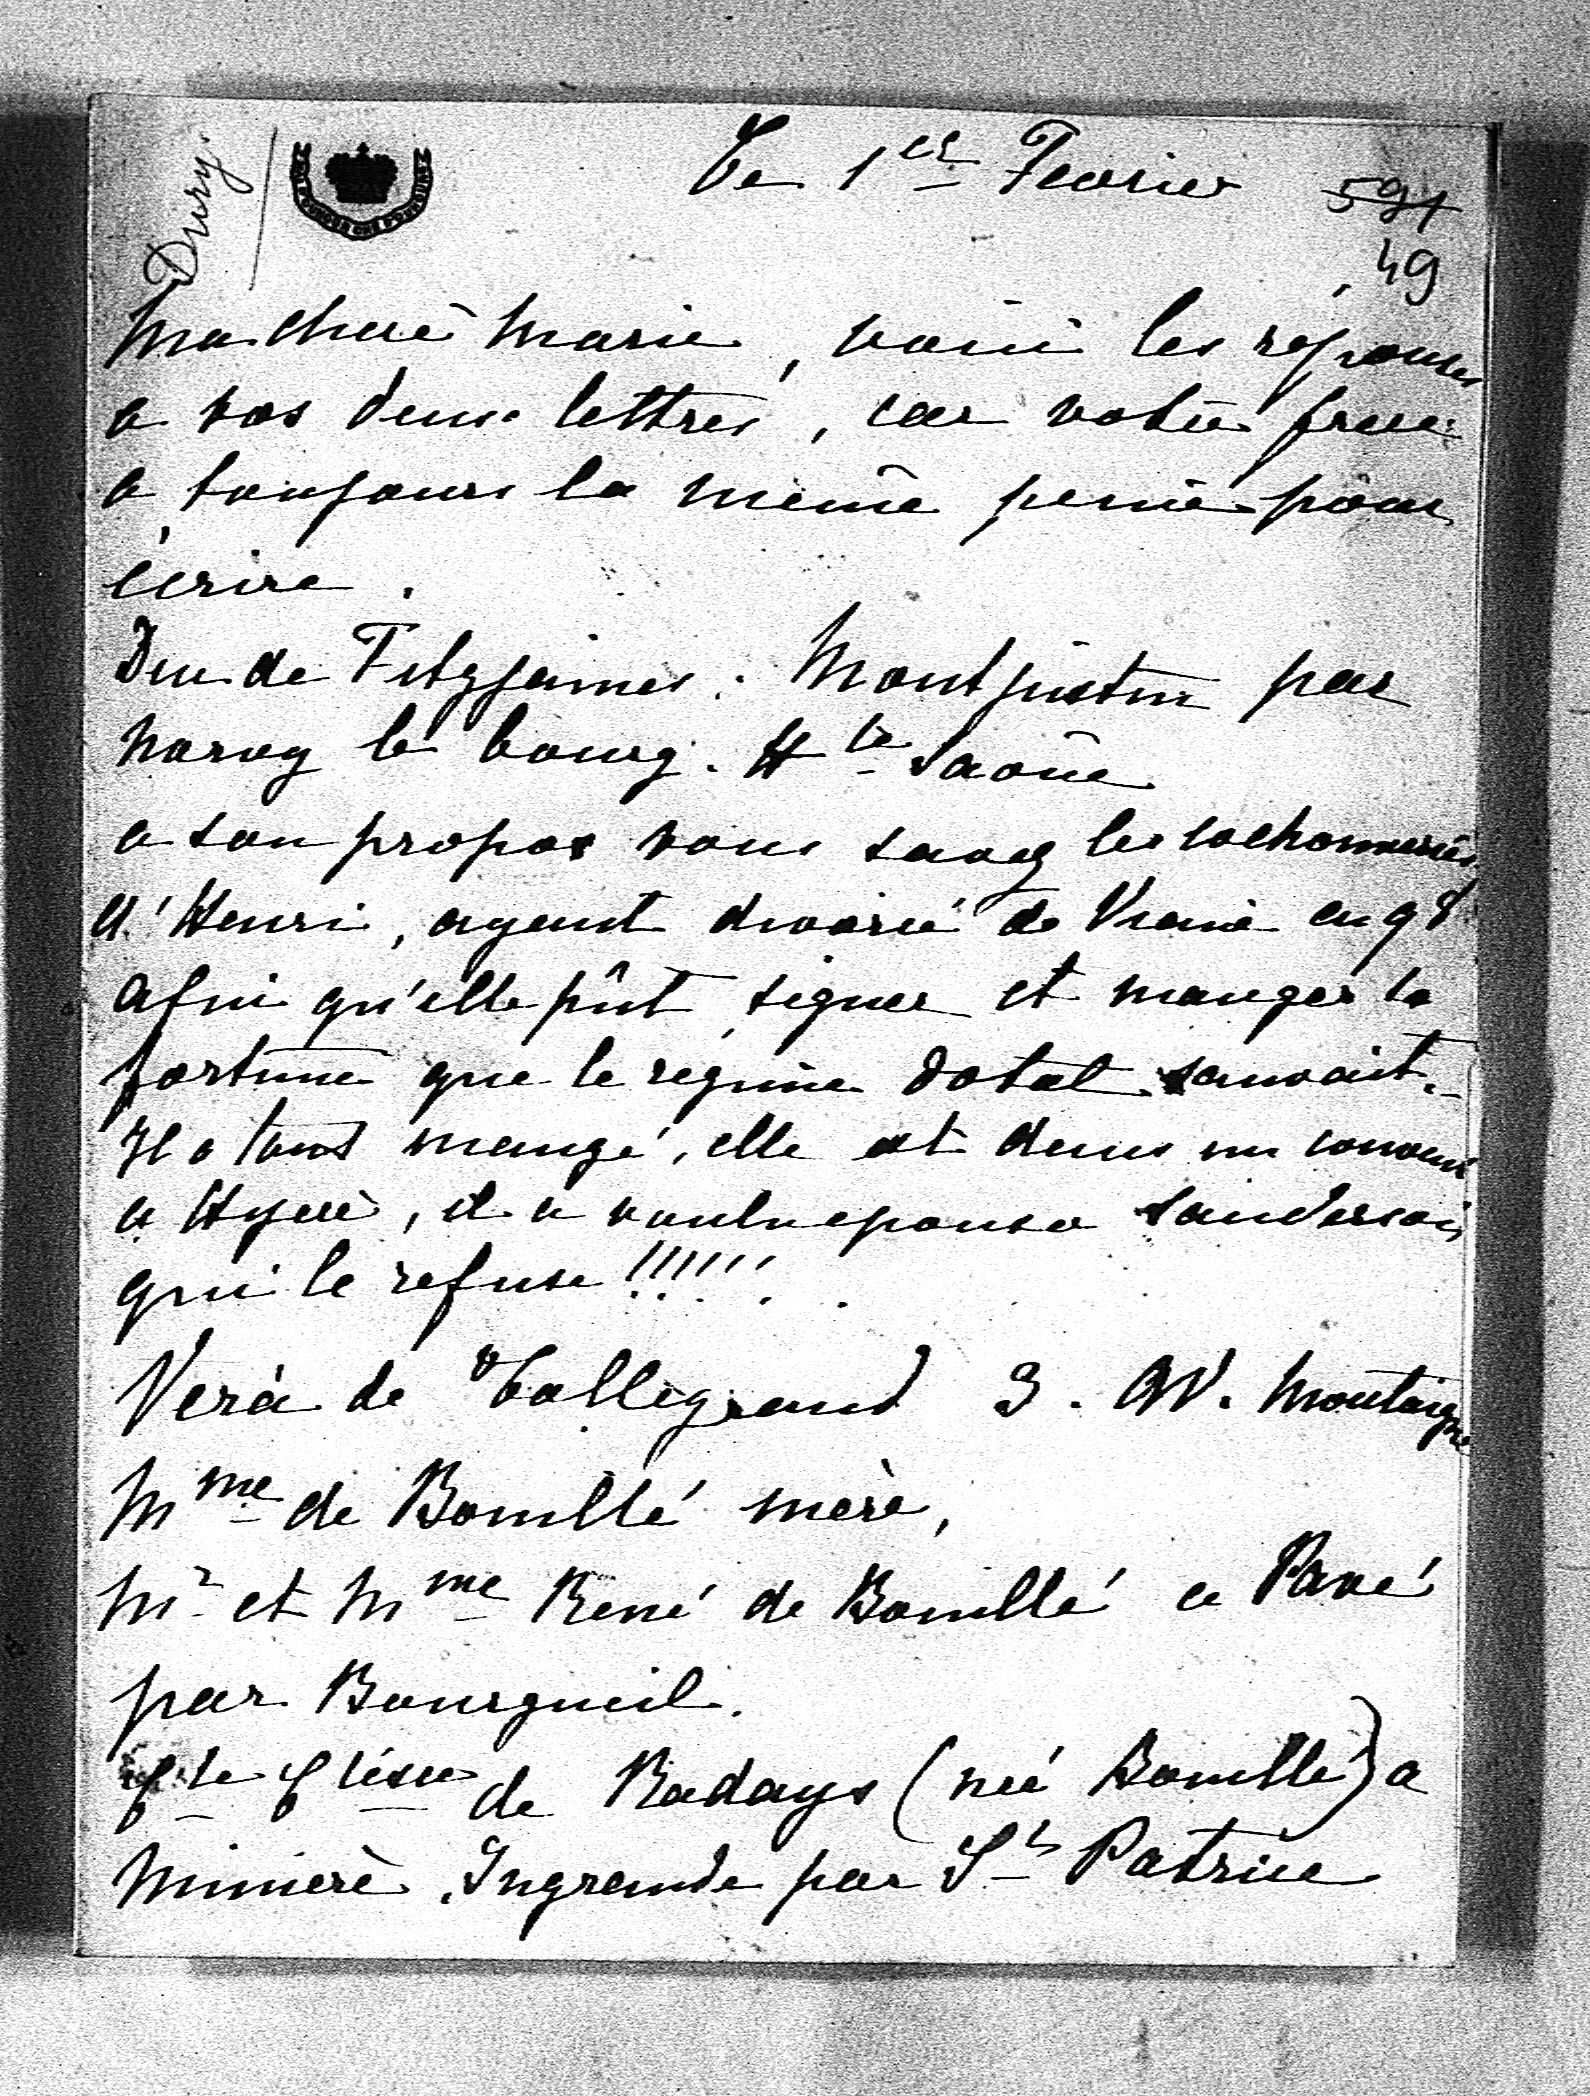 Dury.
Le 1er Fevrier
591
49
Ma chere Marie, voici les reponses
a vos deux lettres, car votre frere
a toujours la même peine pour
écrire.
Duc de Fitzjames. Montjustin par
Noroy le bourg. Hte Saône
a son propos vous savez les cochonneries
d'Henri, ayant divorcé de en 98
afin qu'elle pût signer et manger la
fortune que le regime dotal sauvait.
Il a tout mangé, elle est dans un couvent
a Hyere, il a voulu epouser Sanderson
qui le refuse !!!!!!
Vera de Talleyrand 3. AV. Montaigne
Mme de Bouillé mère,
Mr et Mme René de Bouillé a Pavé
par Bourgueil.
Cte Ctesse de Kadays (neé Bouillé) a
Miniere. Ingrande par St Patrice